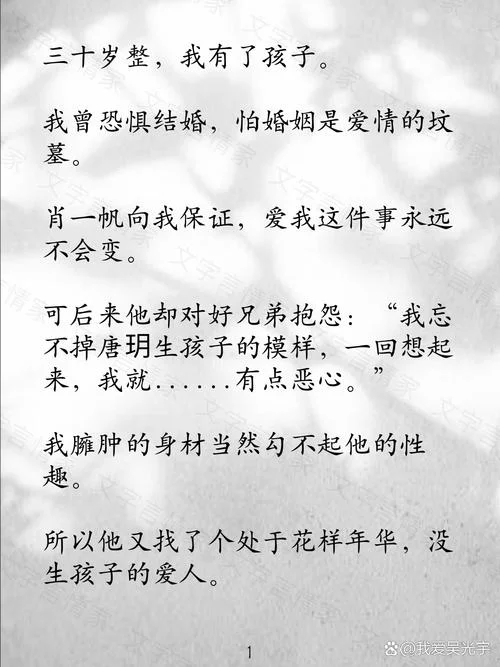 三十岁整，我有了孩子。
我曾恐惧结婚，怕婚姻是爱情的坟
墓。
肖一帆向我保证，爱我这件事永远
不会变。
可后来他却对好兄弟抱怨：“我忘
不掉唐玥生孩子的模样，一回想起
来，我就......有点恶心。”
我臃肿的身材当然勾不起他的性
趣。
所以他又找了个处于花样年华，没
生孩子的爱人。
1
@我爱吴光宇